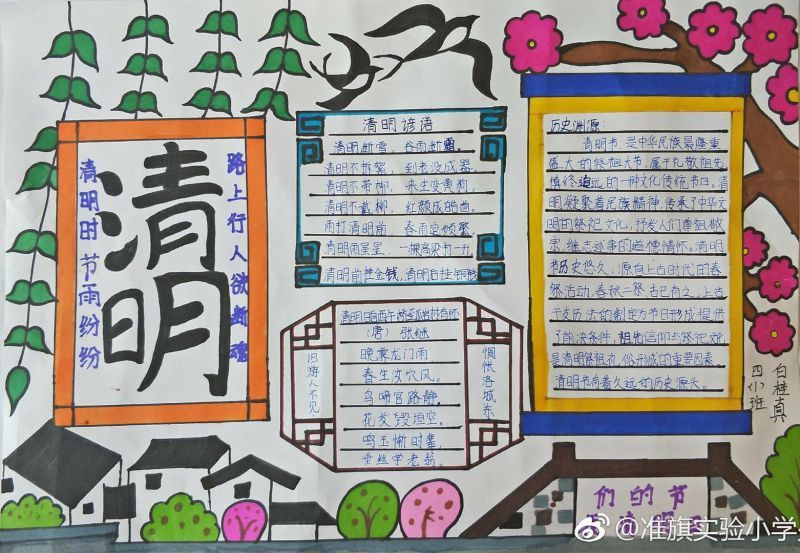 清明时节雨纷纷
清明
路上行人欲断魂
清明谚语
清明断雪，谷雨断霜。
清明不拆絮，到老没成器。
清明不带柳，来生变黄狗。
清明不戴柳，红颜成皓首。
雨打清明前，春雨定频繁。
清明雨星星，一棵高粱打一升
清明前挂金钱，清明后挂银钱
（唐）张继
晚霁龙门雨，
春生汝穴风。
鸟啼官路静，
花发毁垣空。
鸣玉惭时辈，
垂丝学老翁。
旧游人不见，
惆怅洛城东
历史渊源：
清明节，是中华民族最隆重
盛大的祭祖大节，属于礼敬祖先、
慎终追远的一种文化传统节日。清
明凝聚着民族精神，传承了中华文
明的祭祀文化，抒发人们尊祖敬
宗、继志述事的道德情怀。清明
节历史悠久，源自上古时代的春
祭活动，春秋二祭，古已有之，上古
干支历法的制定为节日形成提供
了前决条件，祖先信仰与祭祀文化
是清明祭祖礼俗形成的重要因素。
清明节有着久远的历史源头。
四（小）班
白桂真
们的节
@准旗实验小学